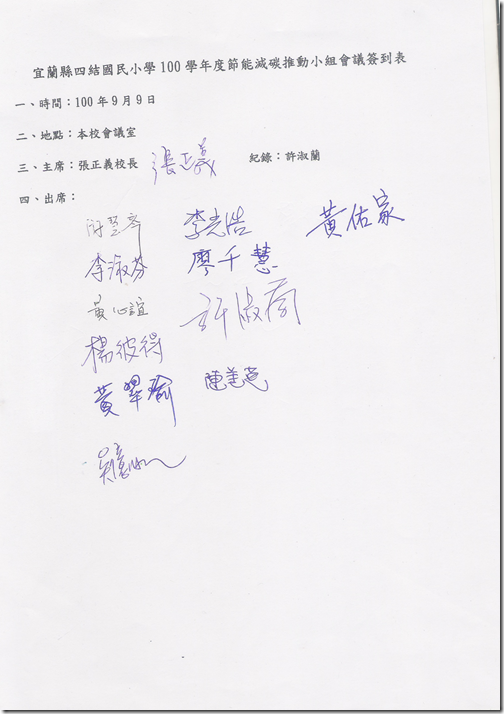 宜蘭縣四結國民小學100學年度節能減碳推動小組會議簽到表
一、時間：100年9月9日
二、地點：本校會議室
三、主席：張正義校長 張正義 紀錄：許淑蘭
四、出席：
李志浩 黃佑家
李淑芬 廖千慧
黃心誼 許淑蘭
楊彼得
黃翠瑜 陳美意